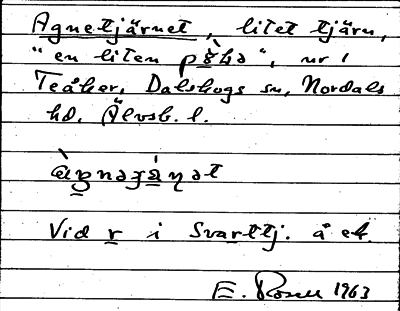 Agnetjärnet, litet tjärn,
"en liten pöhə", nr 1
Teåker, Dalskogs sn, Nordals
hd. Älvsb. l.
Vid r i Svarttj. å ek.
E. 1963